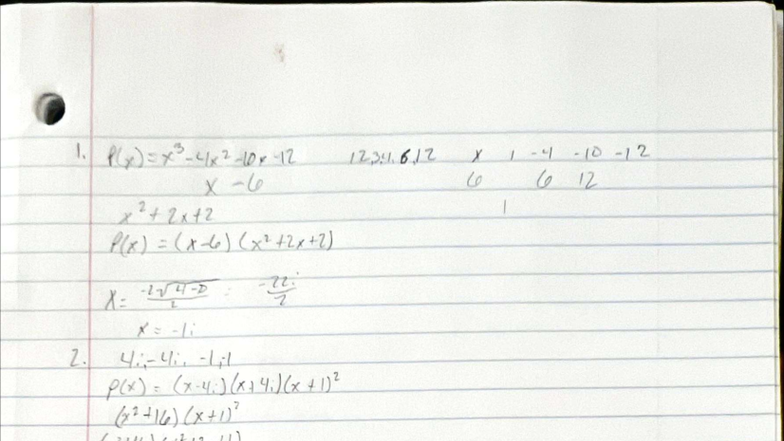 1. P(x)=x³-4x²-10x-12 1,2,3,4,6,12 x 1 -4 -10 -12
x-6 6 6 12
x²+2x+2 1
P(x)=(x-6)(x²+2x+2)
x= -2√4-8 / 2 = -22i / 2
x=-1i
2. 4i,-4i,-1,-1
p(x)=(x-4i)(x+4i)(x+1)²
(x²+16)(x+1)²